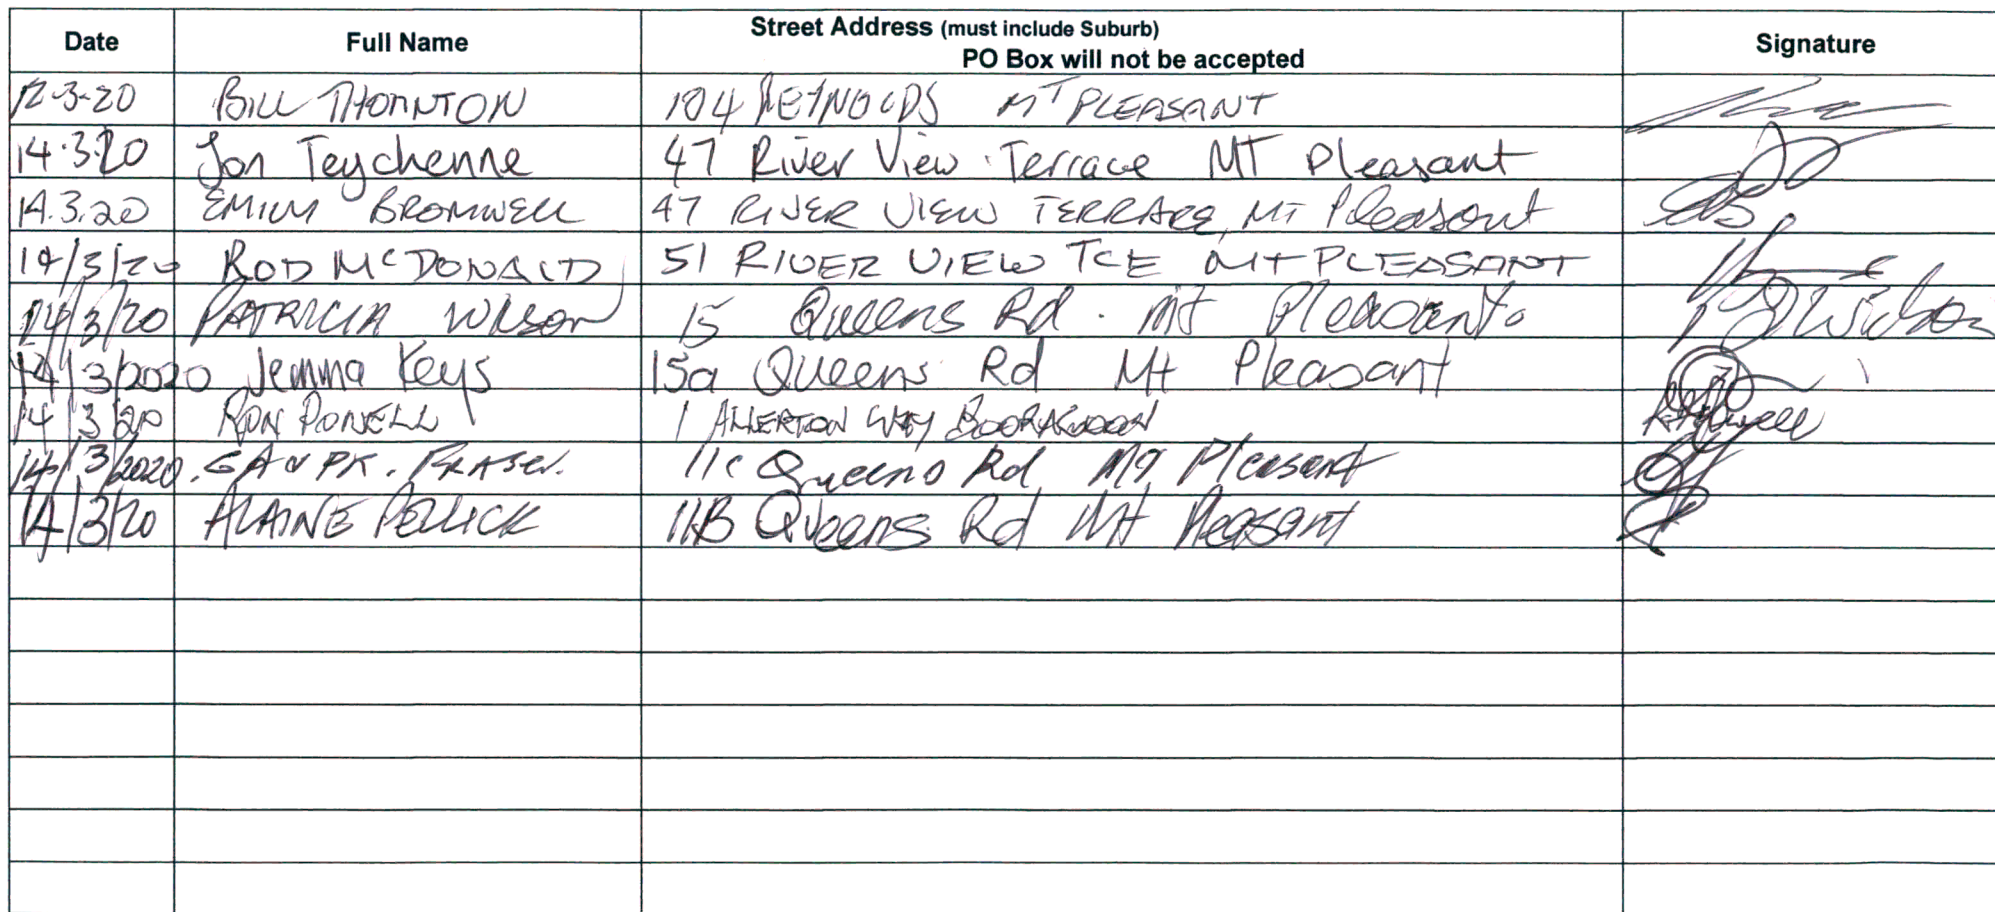 Date Full Name Street Address (must include Suburb) PO Box will not be accepted Signature
12-3-20 BILL THORNTON 104 REYNOLDS MT PLEASANT
14.3.20 Jon Teychenne 47 River View Terrace MT Pleasant
14.3.20 EMILY BROMWELL 47 RIVER VIEW TERRACE, MT Pleasant
14/3/20 ROD MCDONALD 51 RIVER VIEW TCE MT PLEASANT
14/3/20 PATRICIA WILSON 15 Queens Rd. Mt Pleasant. Wilson
14/3/2020 Jemma Keys 15a Queens Rd Mt Pleasant
14/3/20 RON POWELL 1 ALLERTON WAY BOORAGOON
14/3/2020. FRASER. 11c Queens Rd Mt Pleasant
14/3/20 ALAINE PELLICK 11B Queens Rd Mt Pleasant